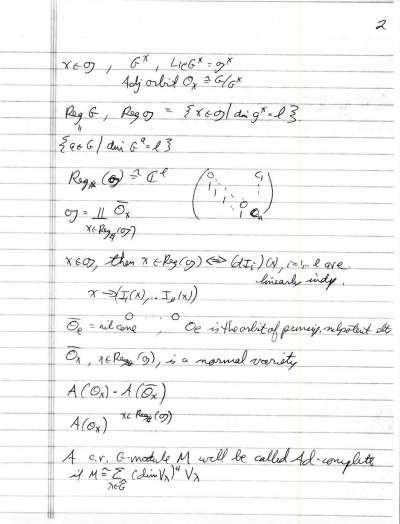 2
x ∈ 𝔤, G^x, Lie G^x = 𝔤^x
Adj orbit O_x ≅ G/G^x
Reg G, Reg 𝔤 = {x ∈ 𝔤 | dim 𝔤^x = l}.
||
{a ∈ G | dim G^a = l}
Reg_# (𝔤) ≅ ℂ^l
𝔤 = ∐ Ō_x
x ∈ Reg_#(𝔤)
x ∈ 𝔤, then x ∈ Reg(𝔤) ⟺ (dI_i)(x), i=1,..l are
linearly indp.
x → (I_1(x), .. I_l(x))
0 ... 0
Ō_e = nilcone, O_e is the orbit of princip, nilpotent elts
Ō_x, x ∈ Reg_#(𝔤), is a normal variety
A(O_x) = A(Ō_x)
x ∈ Reg_#(𝔤)
A(O_x)
A c.r. G-module M will be called Ad-complete
if M ≅ Σ (dim V_λ)^u V_λ
λ∈Ĝ